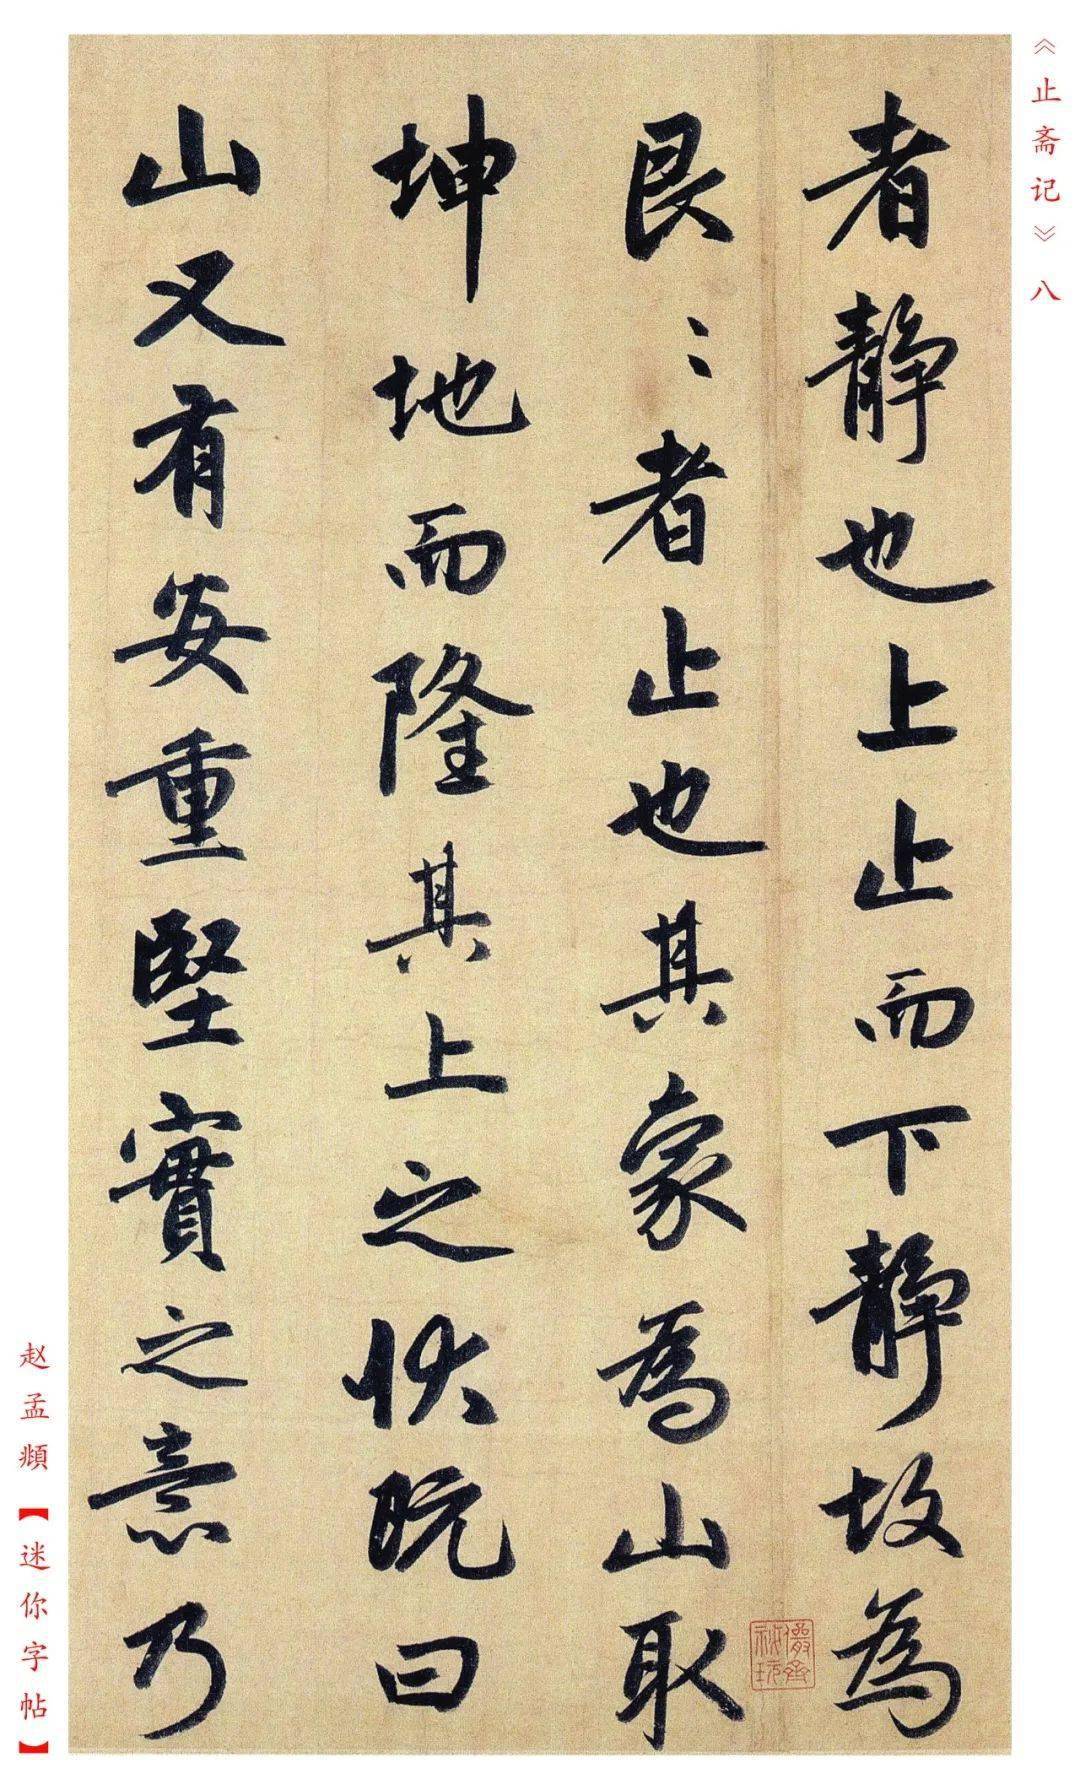 《止斋记》八
者静也上止而下静故為
艮〻者止也其象為山取
坤地而隆其上之状既曰
山又有安重堅實之意乃
儼齋秘玩
赵孟頫【迷你字帖】